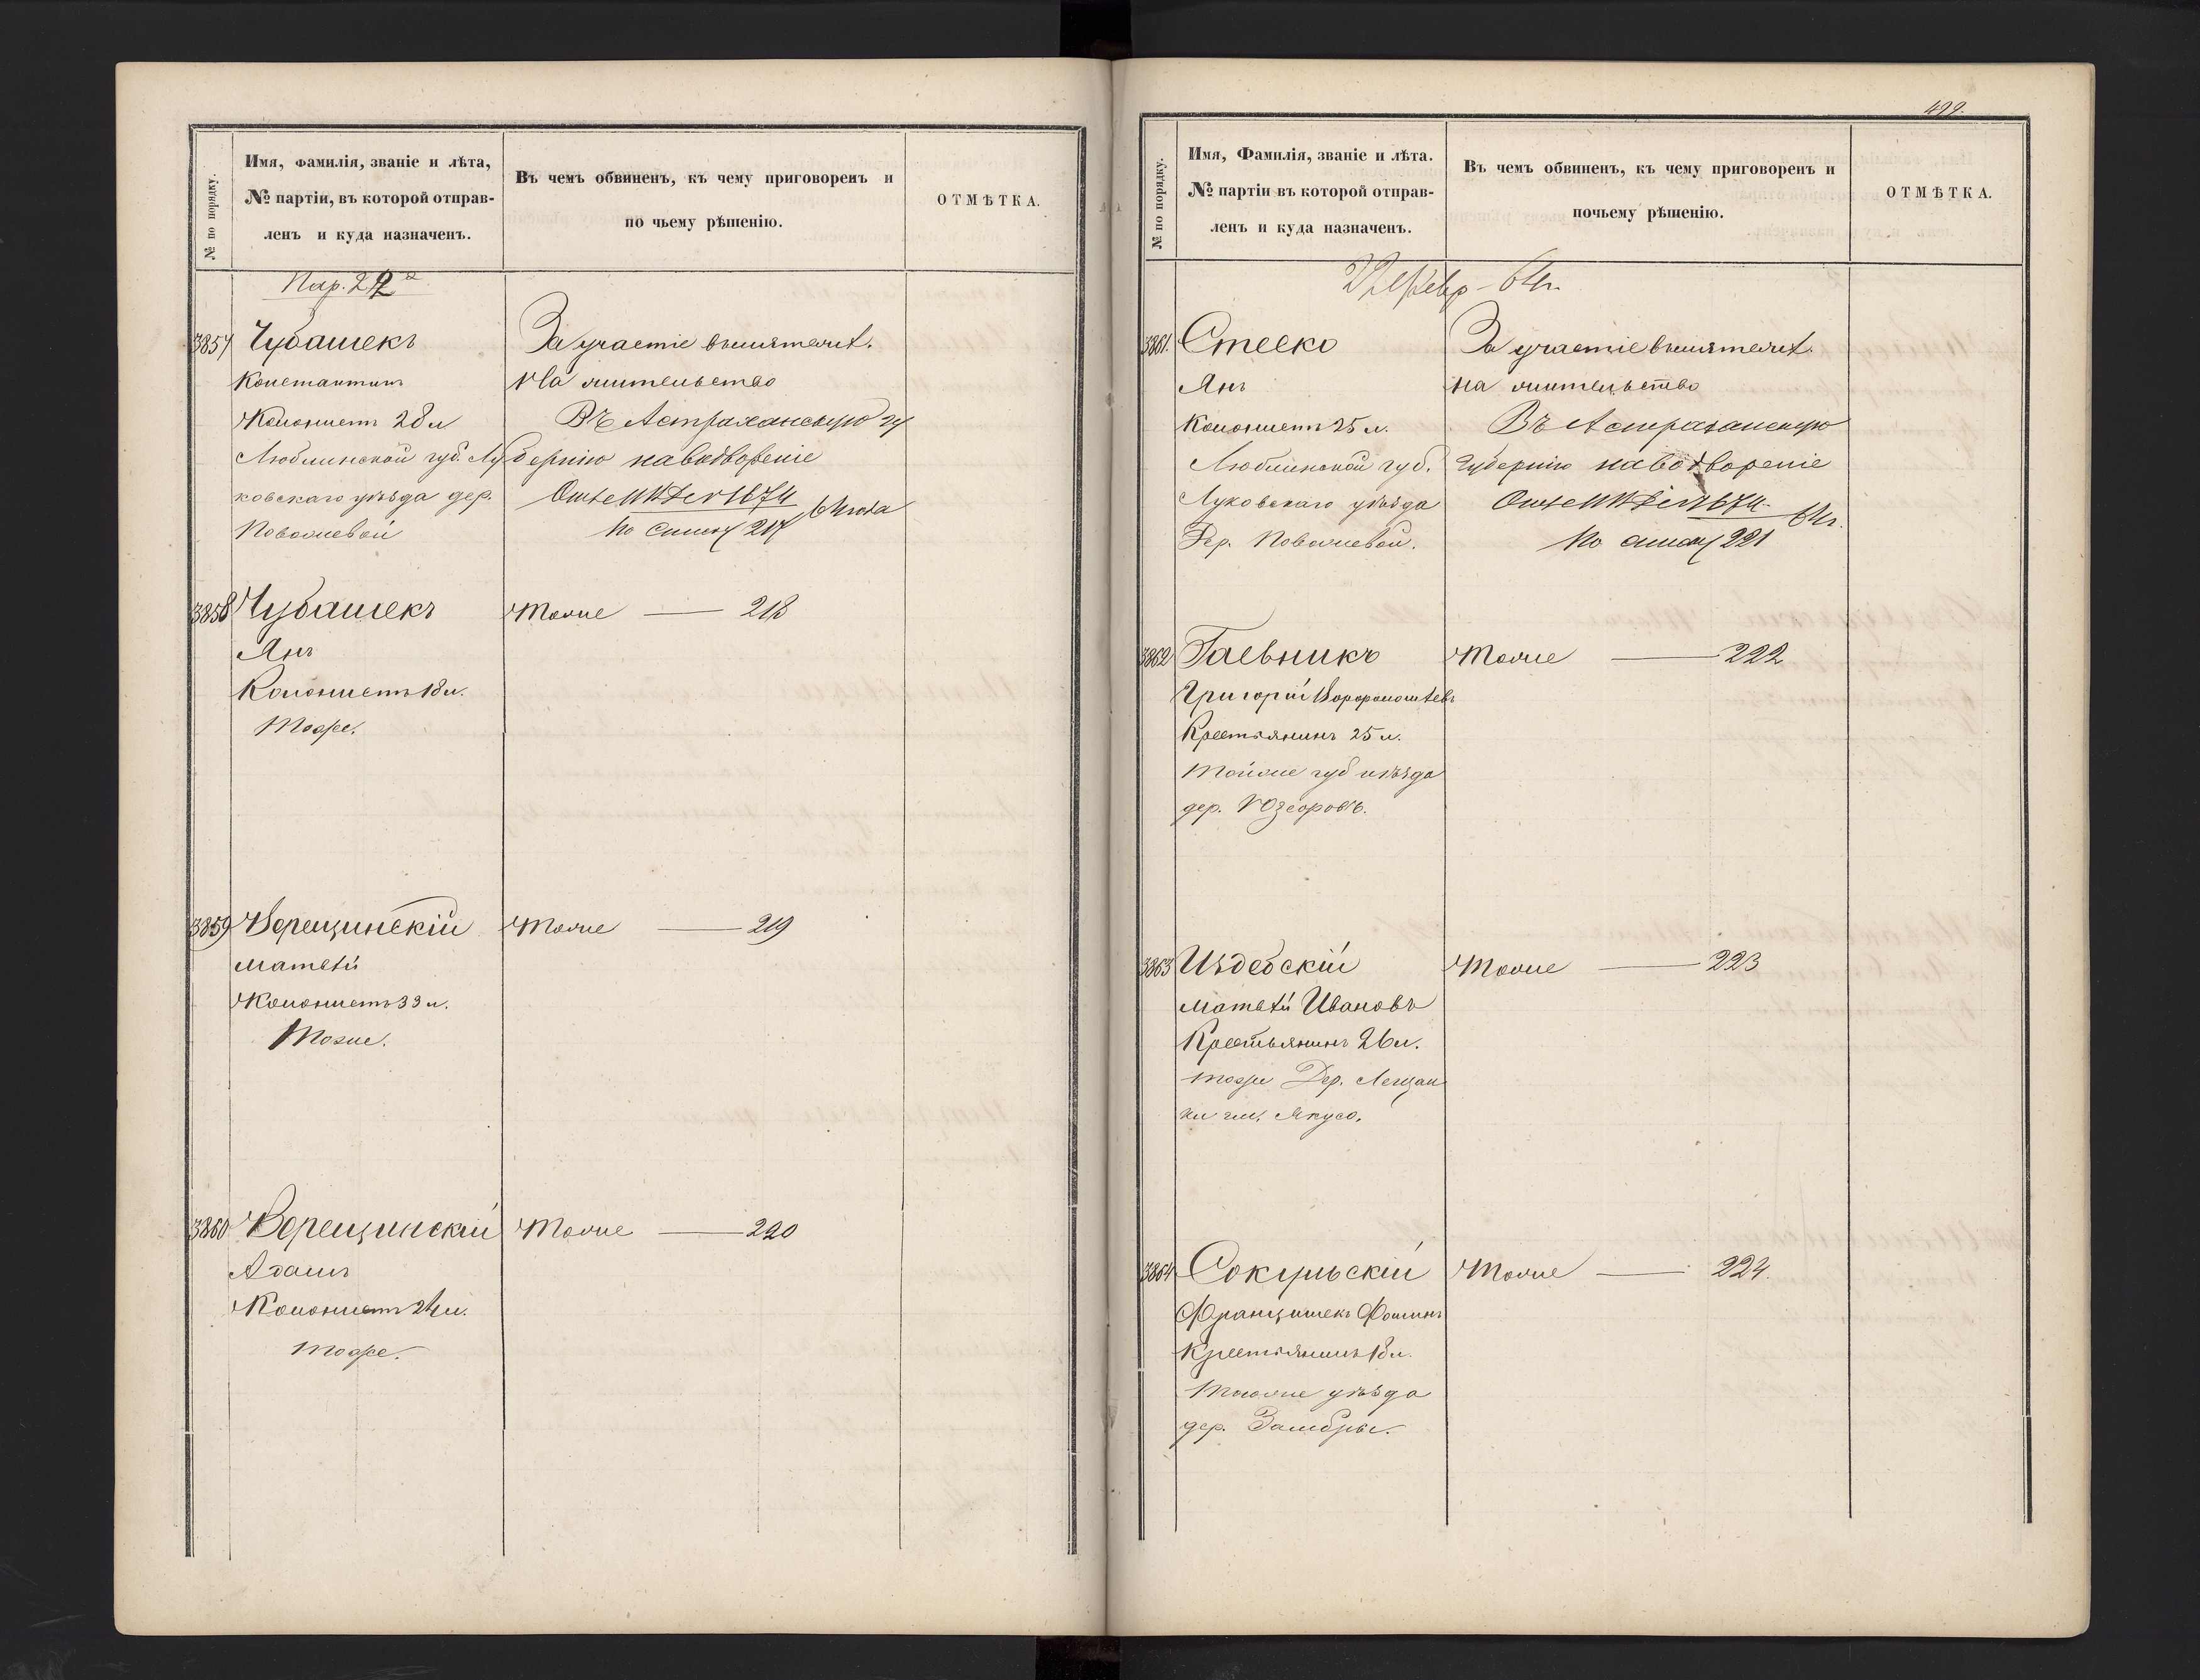 № по порядку.
Имя, фамилія, званіе и лѣта,
№ партіи, въ которой отправ-
ленъ и куда назначенъ.
Въ чемъ обвиненъ, къ чему приговоренъ и
по чьему рѣшенію.
ОТМѢТКА.
Пар. 22
3857
Чубашекъ
Константинъ
Колонистъ 28 л
Люблинской губ. Лу
ковскаго уѣзда дер.
За участіе въ мятежѣ.
На жительство
Въ Астраханскую гу
бернію на водвореніе
1674
64 года
По списку 217
3858
Чубашекъ
Янъ
Колонистъ 18 л.
Тоже.
Тоже — 218
3859
Верещинскій
Матвѣй
Колонистъ 33 л.
Тоже.
Тоже — 219
3860
Верещинскій
Адамъ
Колонистъ 24 л.
Тоже.
Тоже — 220
499.
№ по порядку.
Имя, Фамилія, званіе и лѣта.
№ партіи въ которой отправ-
ленъ и куда назначенъ.
Въ чемъ обвиненъ, къ чему приговоренъ и
почьему рѣшенію.
ОТМѢТКА.
22 Февр - 64 г.
3861.
Стеско
Янъ
Колонистъ 25 л.
Люблинской губ.
Луковскаго уѣзда
Дер.
За участіе въ мятежѣ.
на жительство
Въ Астраханскую
Губернію на водвореніе
1674
64 г.
По списку 221
3862
Гаевникъ
Григорій
Крестьянинъ 25 л.
Тойже губ и уѣзда
дер.
Тоже — 222
3863
Издебскій
Матвѣй Ивановъ
Крестьянинъ 26 л.
тоже Дер.
Тоже — 223
3864
Сокульскій
Францишекъ Фоминъ
Крестьянинъ 18 л.
Тогоже уѣзда
дер. Замбры.
Тоже — 224.